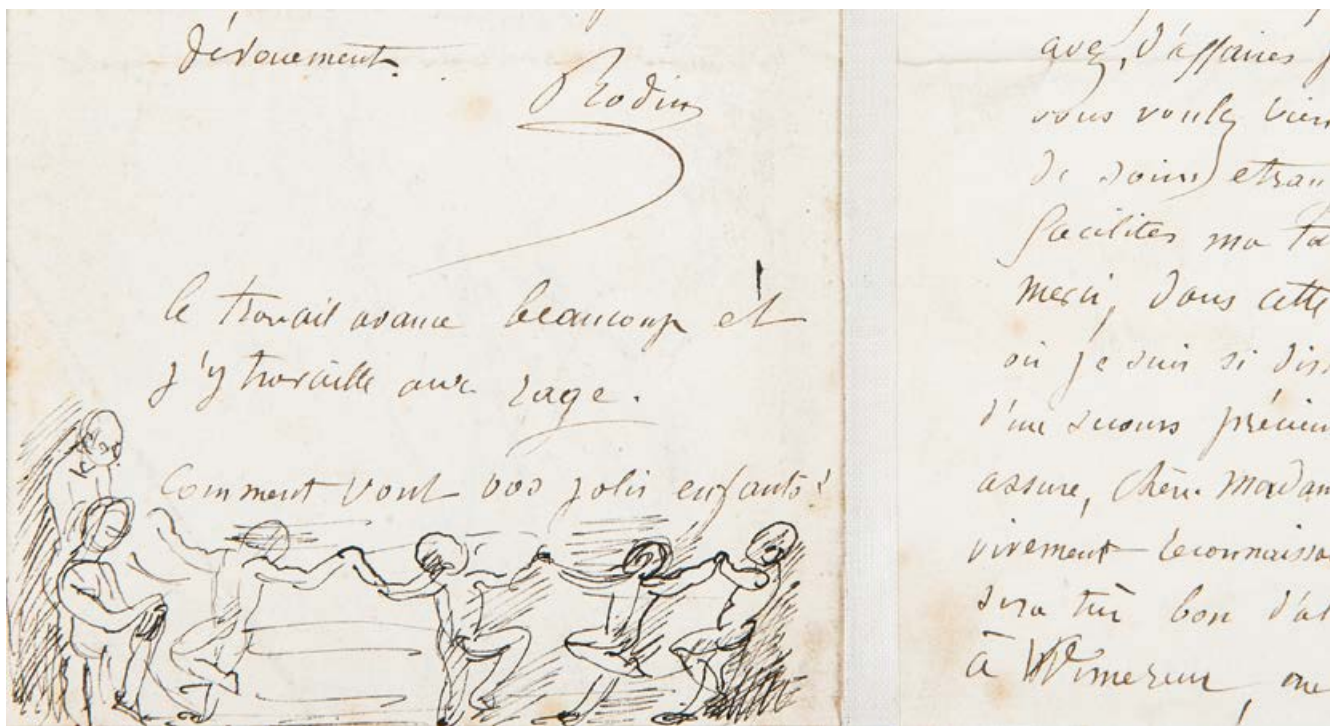 dévouement.
Rodin
le travail avance beaucoup et
j'y travaille avec rage.
Comment vont vos jolis enfants?
avez, d'affaires
vous voulez bien
de soins et
facilites ma
merci, dans cette
où je suis si
d'un secours
assure, chère Madam
vivement reconnaissa
sera très bon d'al
à Wimereux